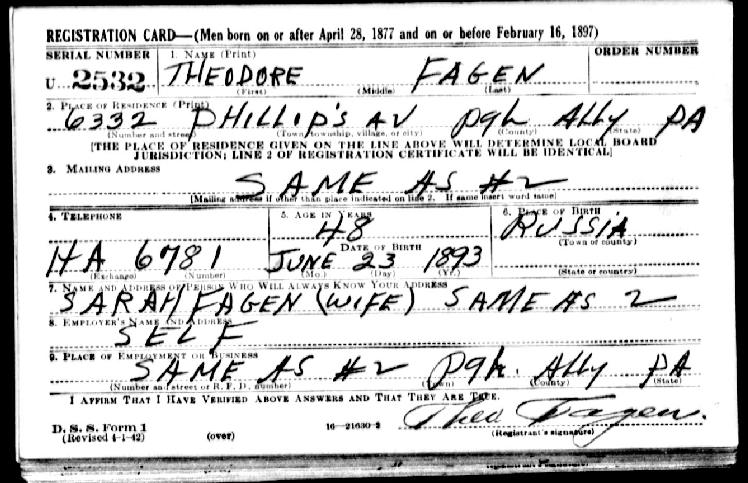 REGISTRATION CARD—(Men born on or after April 28, 1877 and on or before February 16, 1897)
SERIAL NUMBER 1. NAME (Print) ORDER NUMBER
U 2532 THEODORE FAGEN
(First) (Middle) (Last)
2. PLACE OF RESIDENCE (Print)
6332 PHILLIP'S AV Pgh Ally PA
(Number and street) (Town, township, village, or city) (County) (State)
[THE PLACE OF RESIDENCE GIVEN ON THE LINE ABOVE WILL DETERMINE LOCAL BOARD
JURISDICTION; LINE 2 OF REGISTRATION CERTIFICATE WILL BE IDENTICAL]
3. MAILING ADDRESS
SAME AS #2
[Mailing address if other than place indicated on line 2. If same insert word same]
4. TELEPHONE 5. AGE IN YEARS 6. PLACE OF BIRTH
48 RUSSIA
DATE OF BIRTH (Town or county)
HA 6781 JUNE 23 1893
(Exchange) (Number) (Mo.) (Day) (Yr.) (State or country)
7. NAME AND ADDRESS OF PERSON WHO WILL ALWAYS KNOW YOUR ADDRESS
SARAH FAGEN (WIFE) SAME AS 2
8. EMPLOYER'S NAME AND ADDRESS
SELF
9. PLACE OF EMPLOYMENT OR BUSINESS
SAME AS #2 Pgh. Ally PA
(Number and street or R. F. D. number) (Town) (County) (State)
I AFFIRM THAT I HAVE VERIFIED ABOVE ANSWERS AND THAT THEY ARE TRUE.
Theo Fagen.
D. S. S. Form 1
(Revised 4-1-42) (over) 16—21630-2 (Registrant's signature)